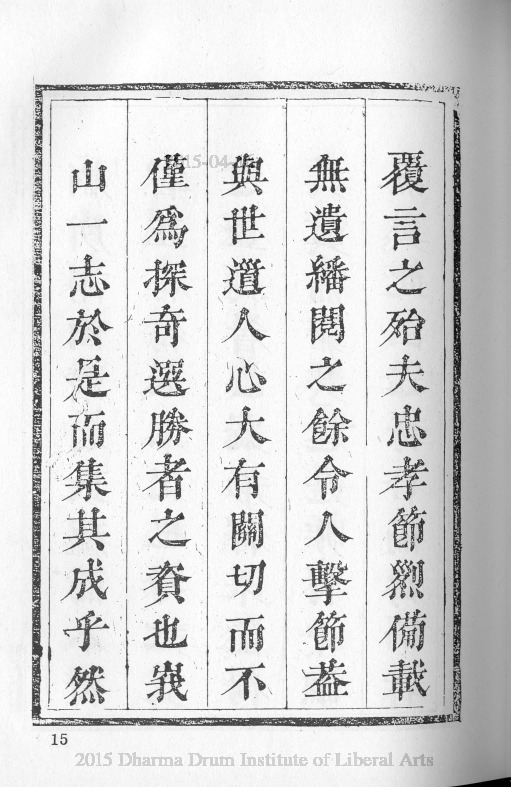 覆言之殆夫忠孝節烈備載
無遺繙閱之餘令人擊節葢
與世道人心大有關切而不
僅為探奇選勝者之資也峩
山一志於是而集其成乎然
15
2015 Dharma Drum Institute of Liberal Arts